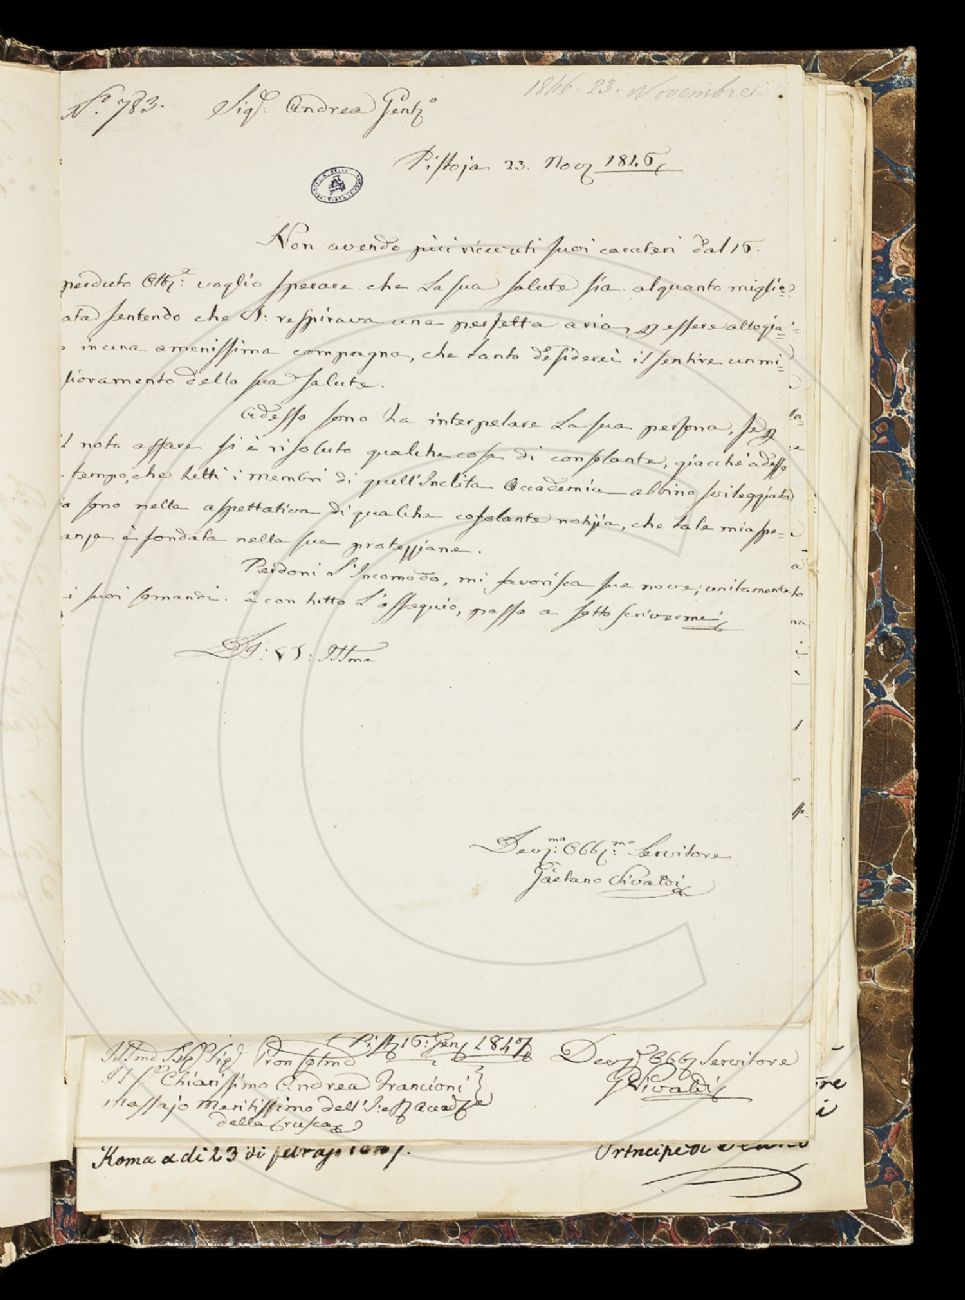 1846. 23. Novembre
N.° 783. Sig.r Andrea Gent.o
Pistoja 23. Nov. 1846
Non avendo più ricevuti suoi caratteri dal 16
perduto Ott.e voglio sperare che La sua salute sia alquanto miglio=
ata sentendo che respirava una perfetta aria, essere allogia
in una amenissima campagna, che tanto desiderei il sentire un mi=
lioramento della sua salute.
Adesso sono ha interpelare La sua persona, se
il noto affare si è risoluto qualche cosa di consolante, giacché adesso
tempo, che tutti i membri di quell'Inclita Accademia abbino
sono nella aspettativa di qualche cosolante notizia, che tale mia spe=
anza è fondata nella sua protezziane.
Perdoni L'Incomodo, mi favorisca sue nuove, unitamente
i suoi comandi. è con tutto L'ossequio, passo a sotto scrivermi
Di: V S: Illma
Dev.mo Obb.mo Servitore
Gaetano Vivaldi
16: Gen. 1847
Illmo Sig. Sig. Pron Colmo
Il Chiarissimo Andrea Francioni
Massajo Meritissimo dell'
della Crusca
Dev. Obb. Servitore
G Vivaldi
Roma a di 23 di
Principe di